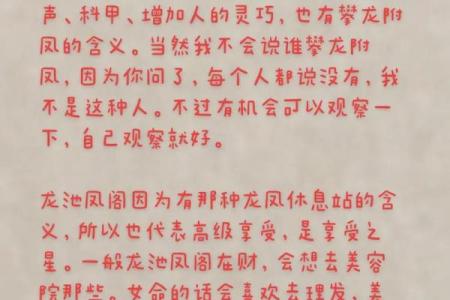 声、科甲、增加人的灵巧，也有攀龙附
凤的含义。当然我不会说谁攀龙附
凤，因为你问了，每个人都说没有，我
不是这种人。不过有机会可以观察一
下，自己观察就好。
龙池凤阁因为有那种龙凤休息站的含
义，所以也代表高级享受，是享受之
星。一般龙池凤阁在财，会想去美容
院那些。女命的话会喜欢去理发、美